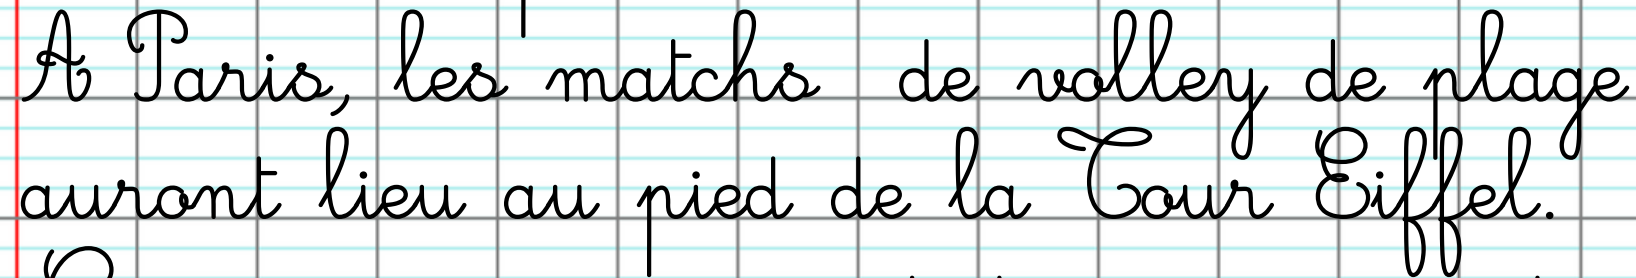 A Paris, les matchs de volley de plage
auront lieu au pied de la Tour Eiffel.